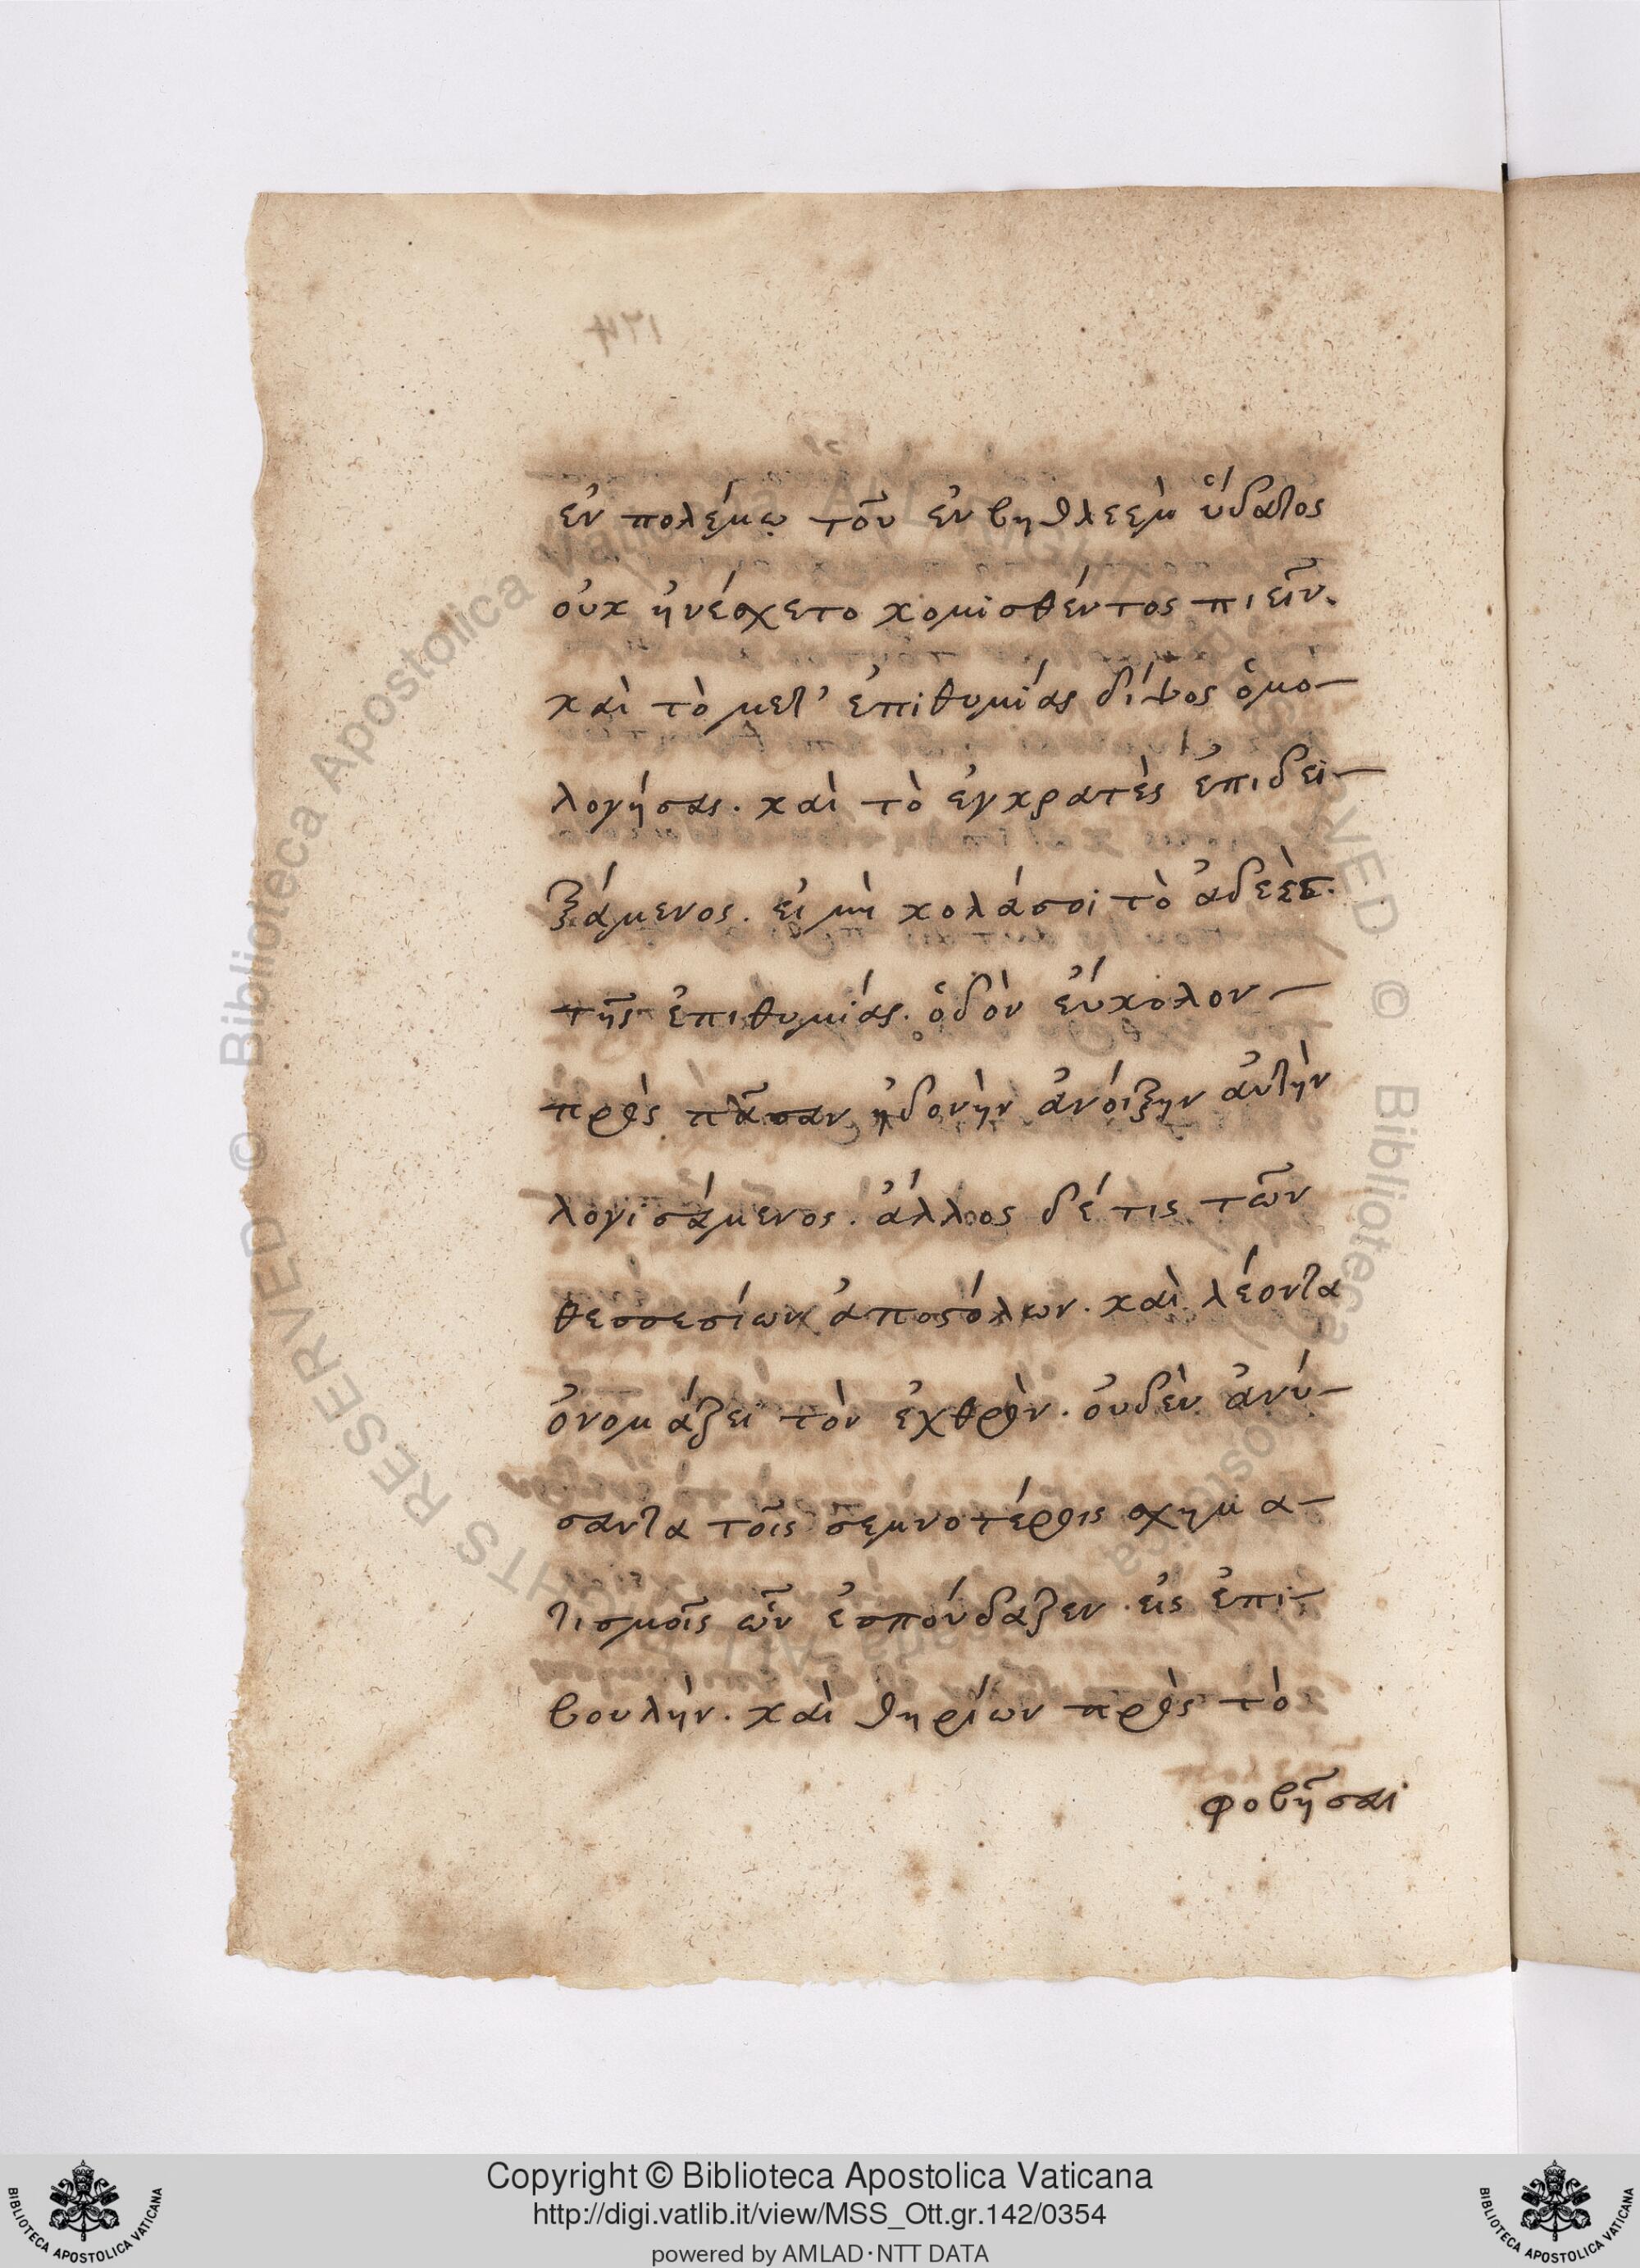 ἐν πολέμῳ τοῦ ἐν βηθλεὲμ ὕδατος
οὐκ ἠνέσχετο κομισθέντος πιεῖν.
καὶ τὸ μετ' ἐπιθυμίας δίψος ὁμο-
λογήσας. καὶ τὸ ἐγκρατὲς ἐπιδει-
ξάμενος. εἰ μὴ κολάσοι τὸ ἀδεὲς.
τῆς ἐπιθυμίας. ὁδὸν εὔκολον
πρὸς πᾶσαν ἡδονὴν ἀνοίξην αὐτὴν
λογισάμενος. ἄλλος δέ τις τῶν
θεσσεσίων ἀποστόλων. καὶ λέοντα
ὀνομάζει τὸν ἐχθρὸν. οὐδὲν ἀνύ-
σαντα τοῖς σεμνοτέροις σχημα-
τισμοῖς ὧν ἐσπούδαζεν. εἰς ἐπι-
βουλὴν. καὶ θηρίων πρὸς τὸ
φοβῆσαι
Copyright © Biblioteca Apostolica Vaticana
http://digi.vatlib.it/view/MSS_Ott.gr.142/0354
powered by AMLAD·NTT DATA
BIBLIOTECA APOSTOLICA VATICANA
BIBLIOTECA APOSTOLICA VATICANA